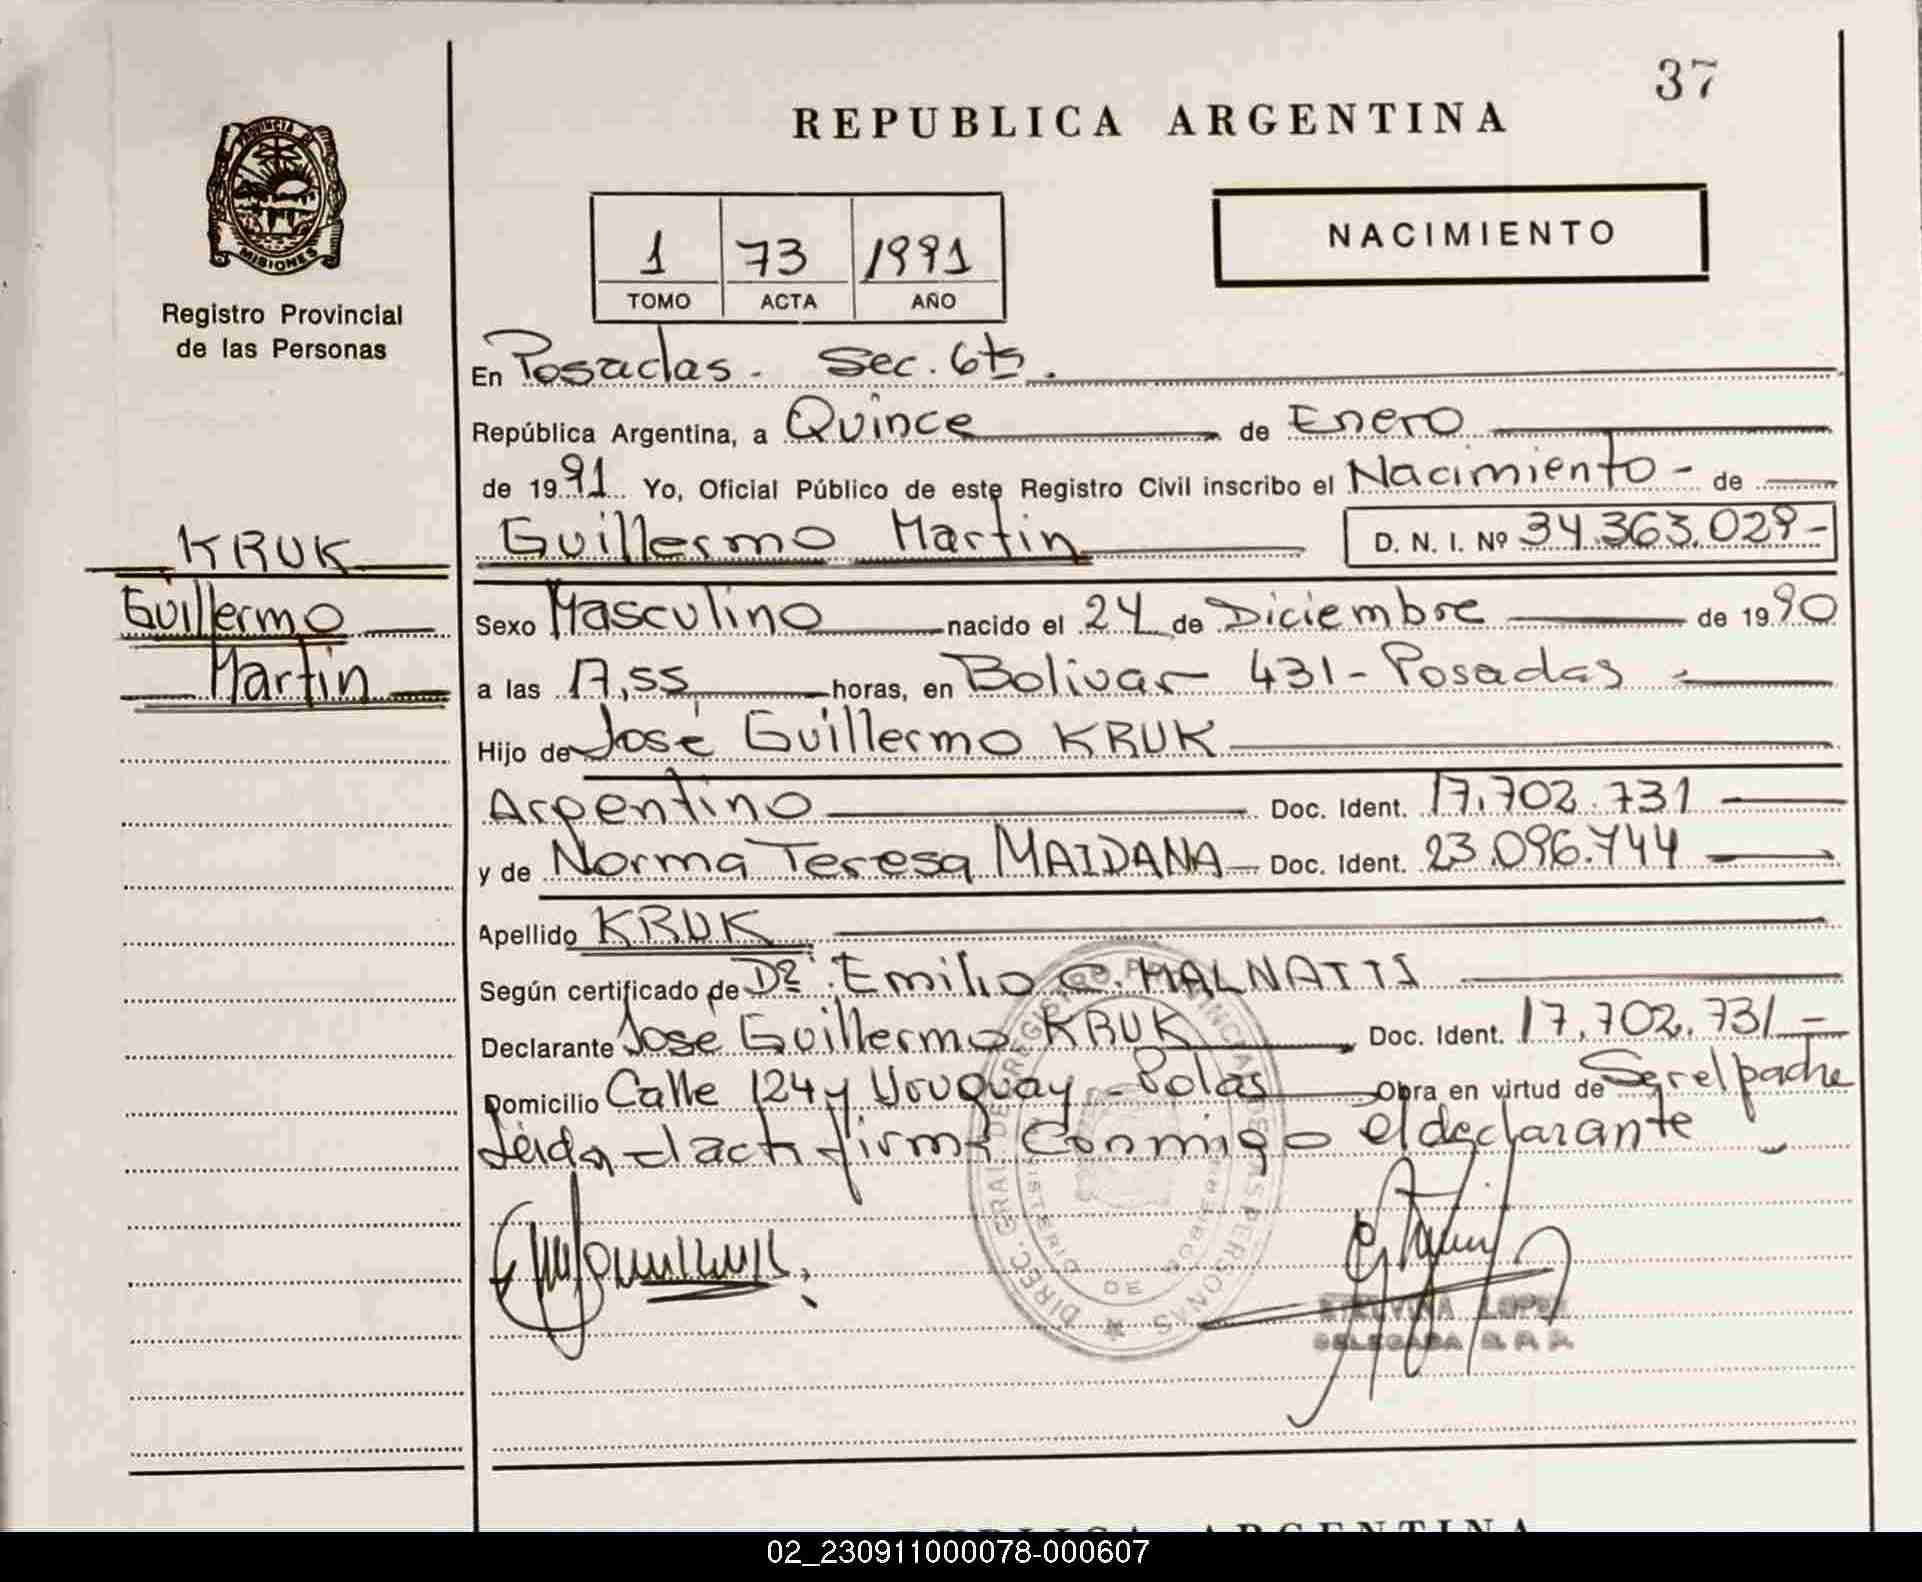 37
REPUBLICA ARGENTINA
PROVINCIA DE
MISIONES
Registro Provincial
de las Personas
NACIMIENTO
1 73 1991
TOMO ACTA AÑO
En Posadas. Sec. 6ta.
República Argentina, a Quince de Enero
de 1991 Yo, Oficial Público de este Registro Civil inscribo el Nacimiento - de
Guillermo Martin D. N. I. Nº 34.363.029-
KRUK
Guillermo
Martin
Sexo Masculino nacido el 24 de Diciembre de 1990
a las horas, en Bolivar 431 - Posadas
Hijo de José Guillermo KRUK
Argentino Doc. Ident. 17.702.731
y de Norma Teresa MAIDANA Doc. Ident. 23.096.744
Apellido KRUK
Según certificado de Dr. Emilio C. MALNATTI
Declarante Jose Guillermo KRUK Doc. Ident. 17.702.731-
Domicilio Calle 124 y Uruguay - Posas Obra en virtud de Ser el padre
Leida el acta firma Conmigo el declarante
DIREC. GRAL. DE REGISTRO PROVINCIAL DE LAS PERSONAS
MINISTERIO DE GOBIERNO
LOPEZ
DELEGADA R. P. P.
REPUBLICA ARGENTINA
02_230911000078-000607